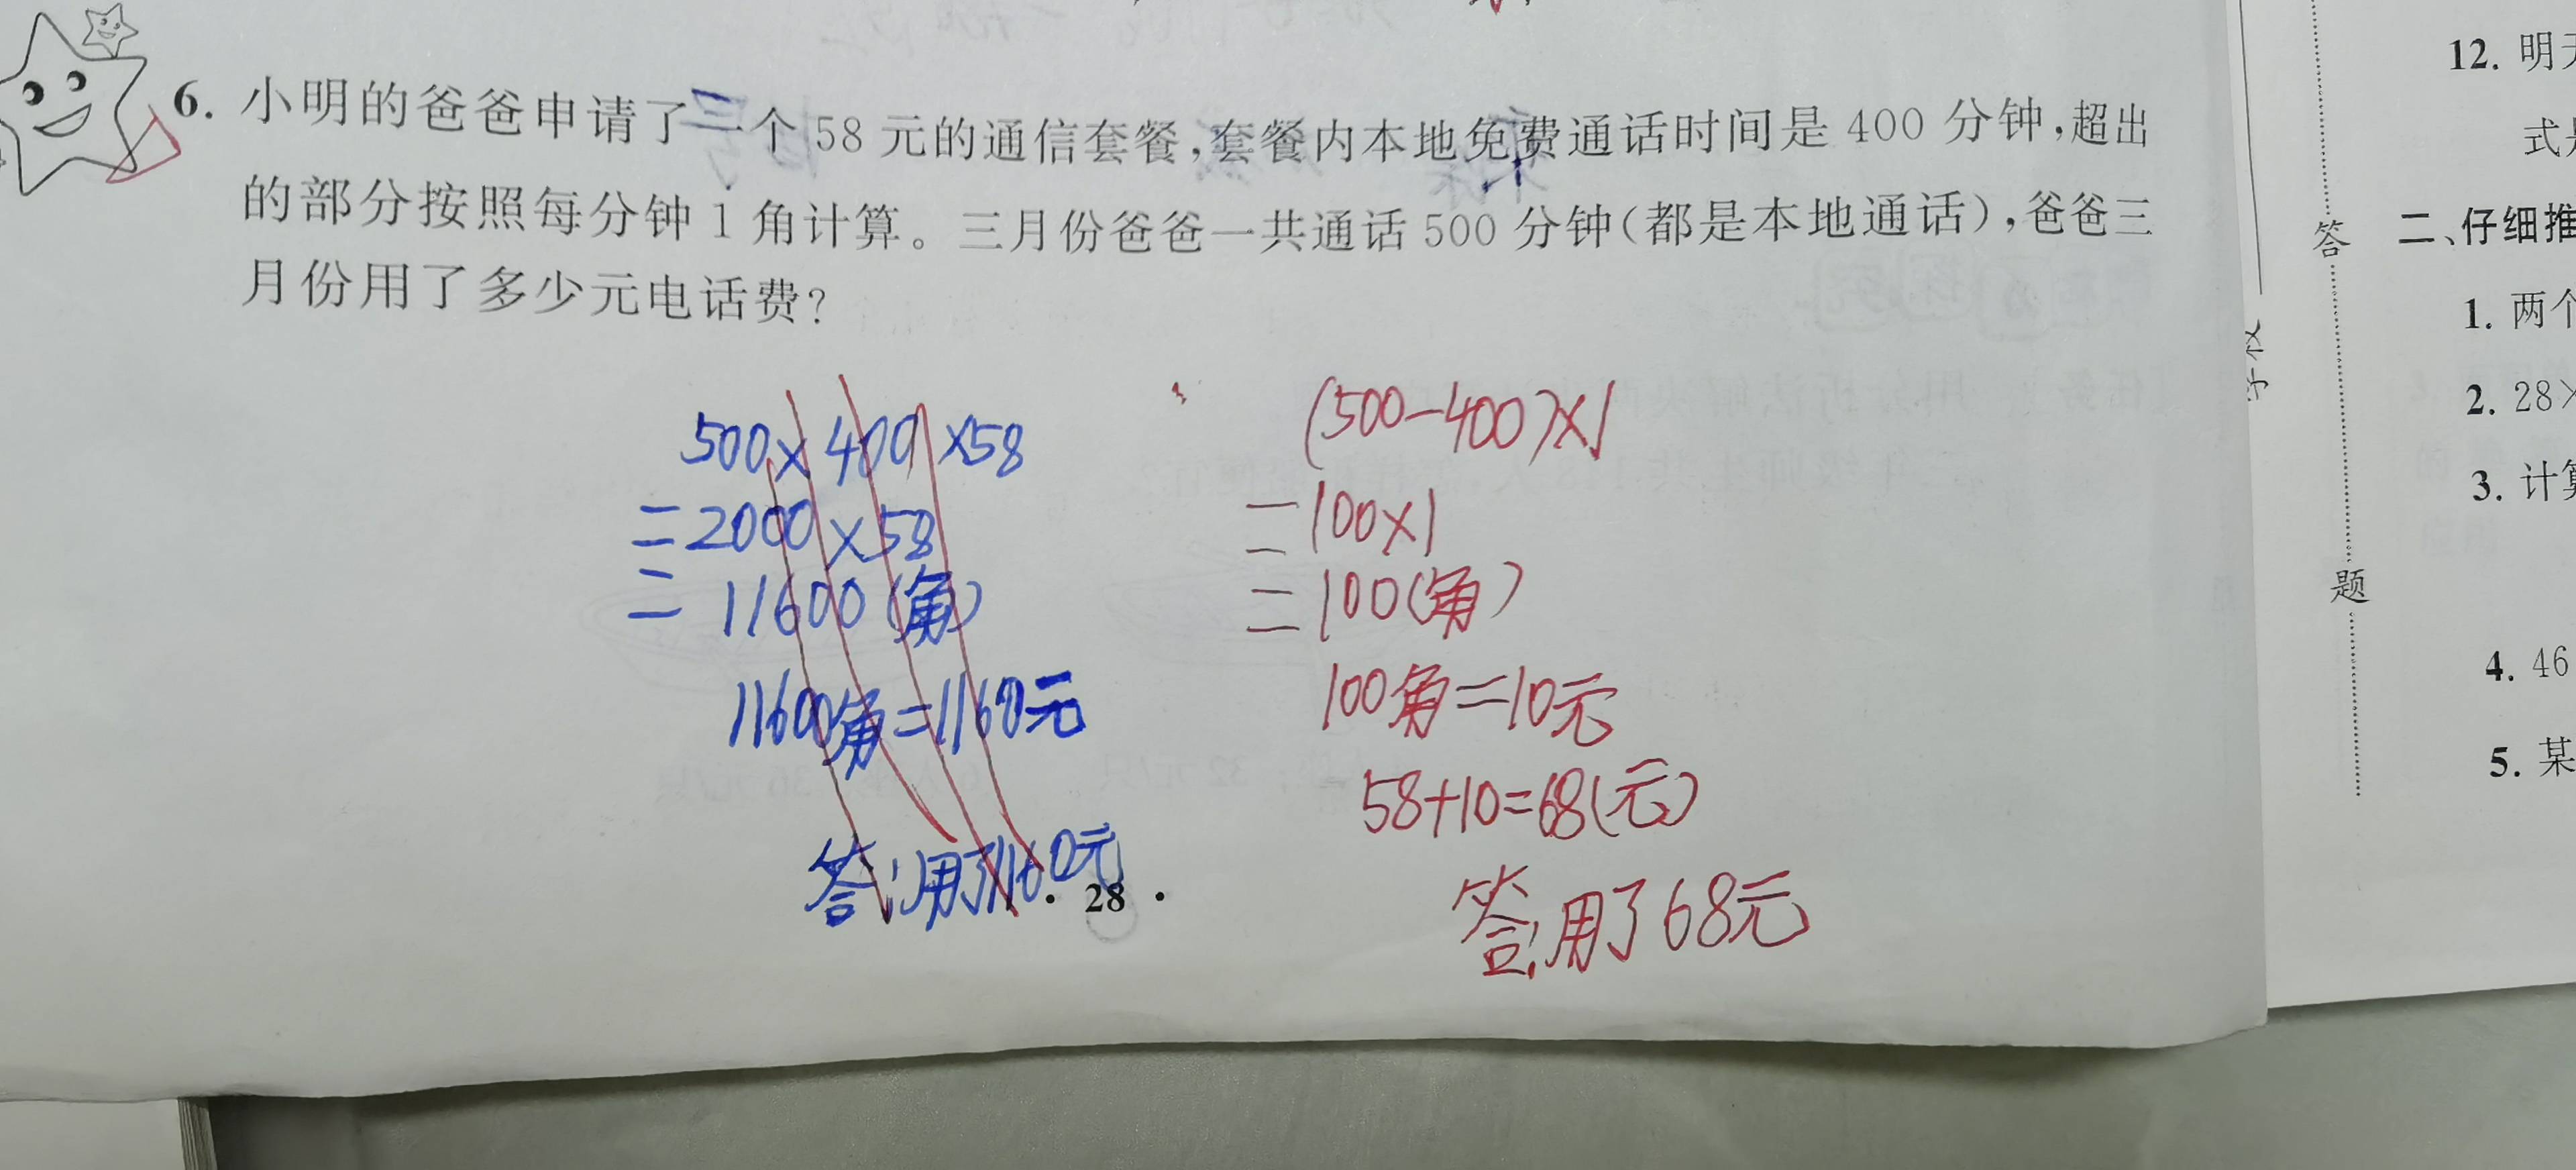 6. 小明的爸爸申请了一个 58 元的通信套餐,套餐内本地免费通话时间是 400 分钟,超出
的部分按照每分钟 1 角计算。三月份爸爸一共通话 500 分钟(都是本地通话),爸爸三
月份用了多少元电话费?
500×400×58
=2000×58
=11600(角)
11600角=1160元
答:用了1160元
(500-400)×1
=100×1
=100(角)
100角=10元
58+10=68(元)
答:用了68元
· 28 ·
学校
答
题
12. 明天
式是
二、仔细推
1. 两个
2. 28×
3. 计算
4. 46
5. 某